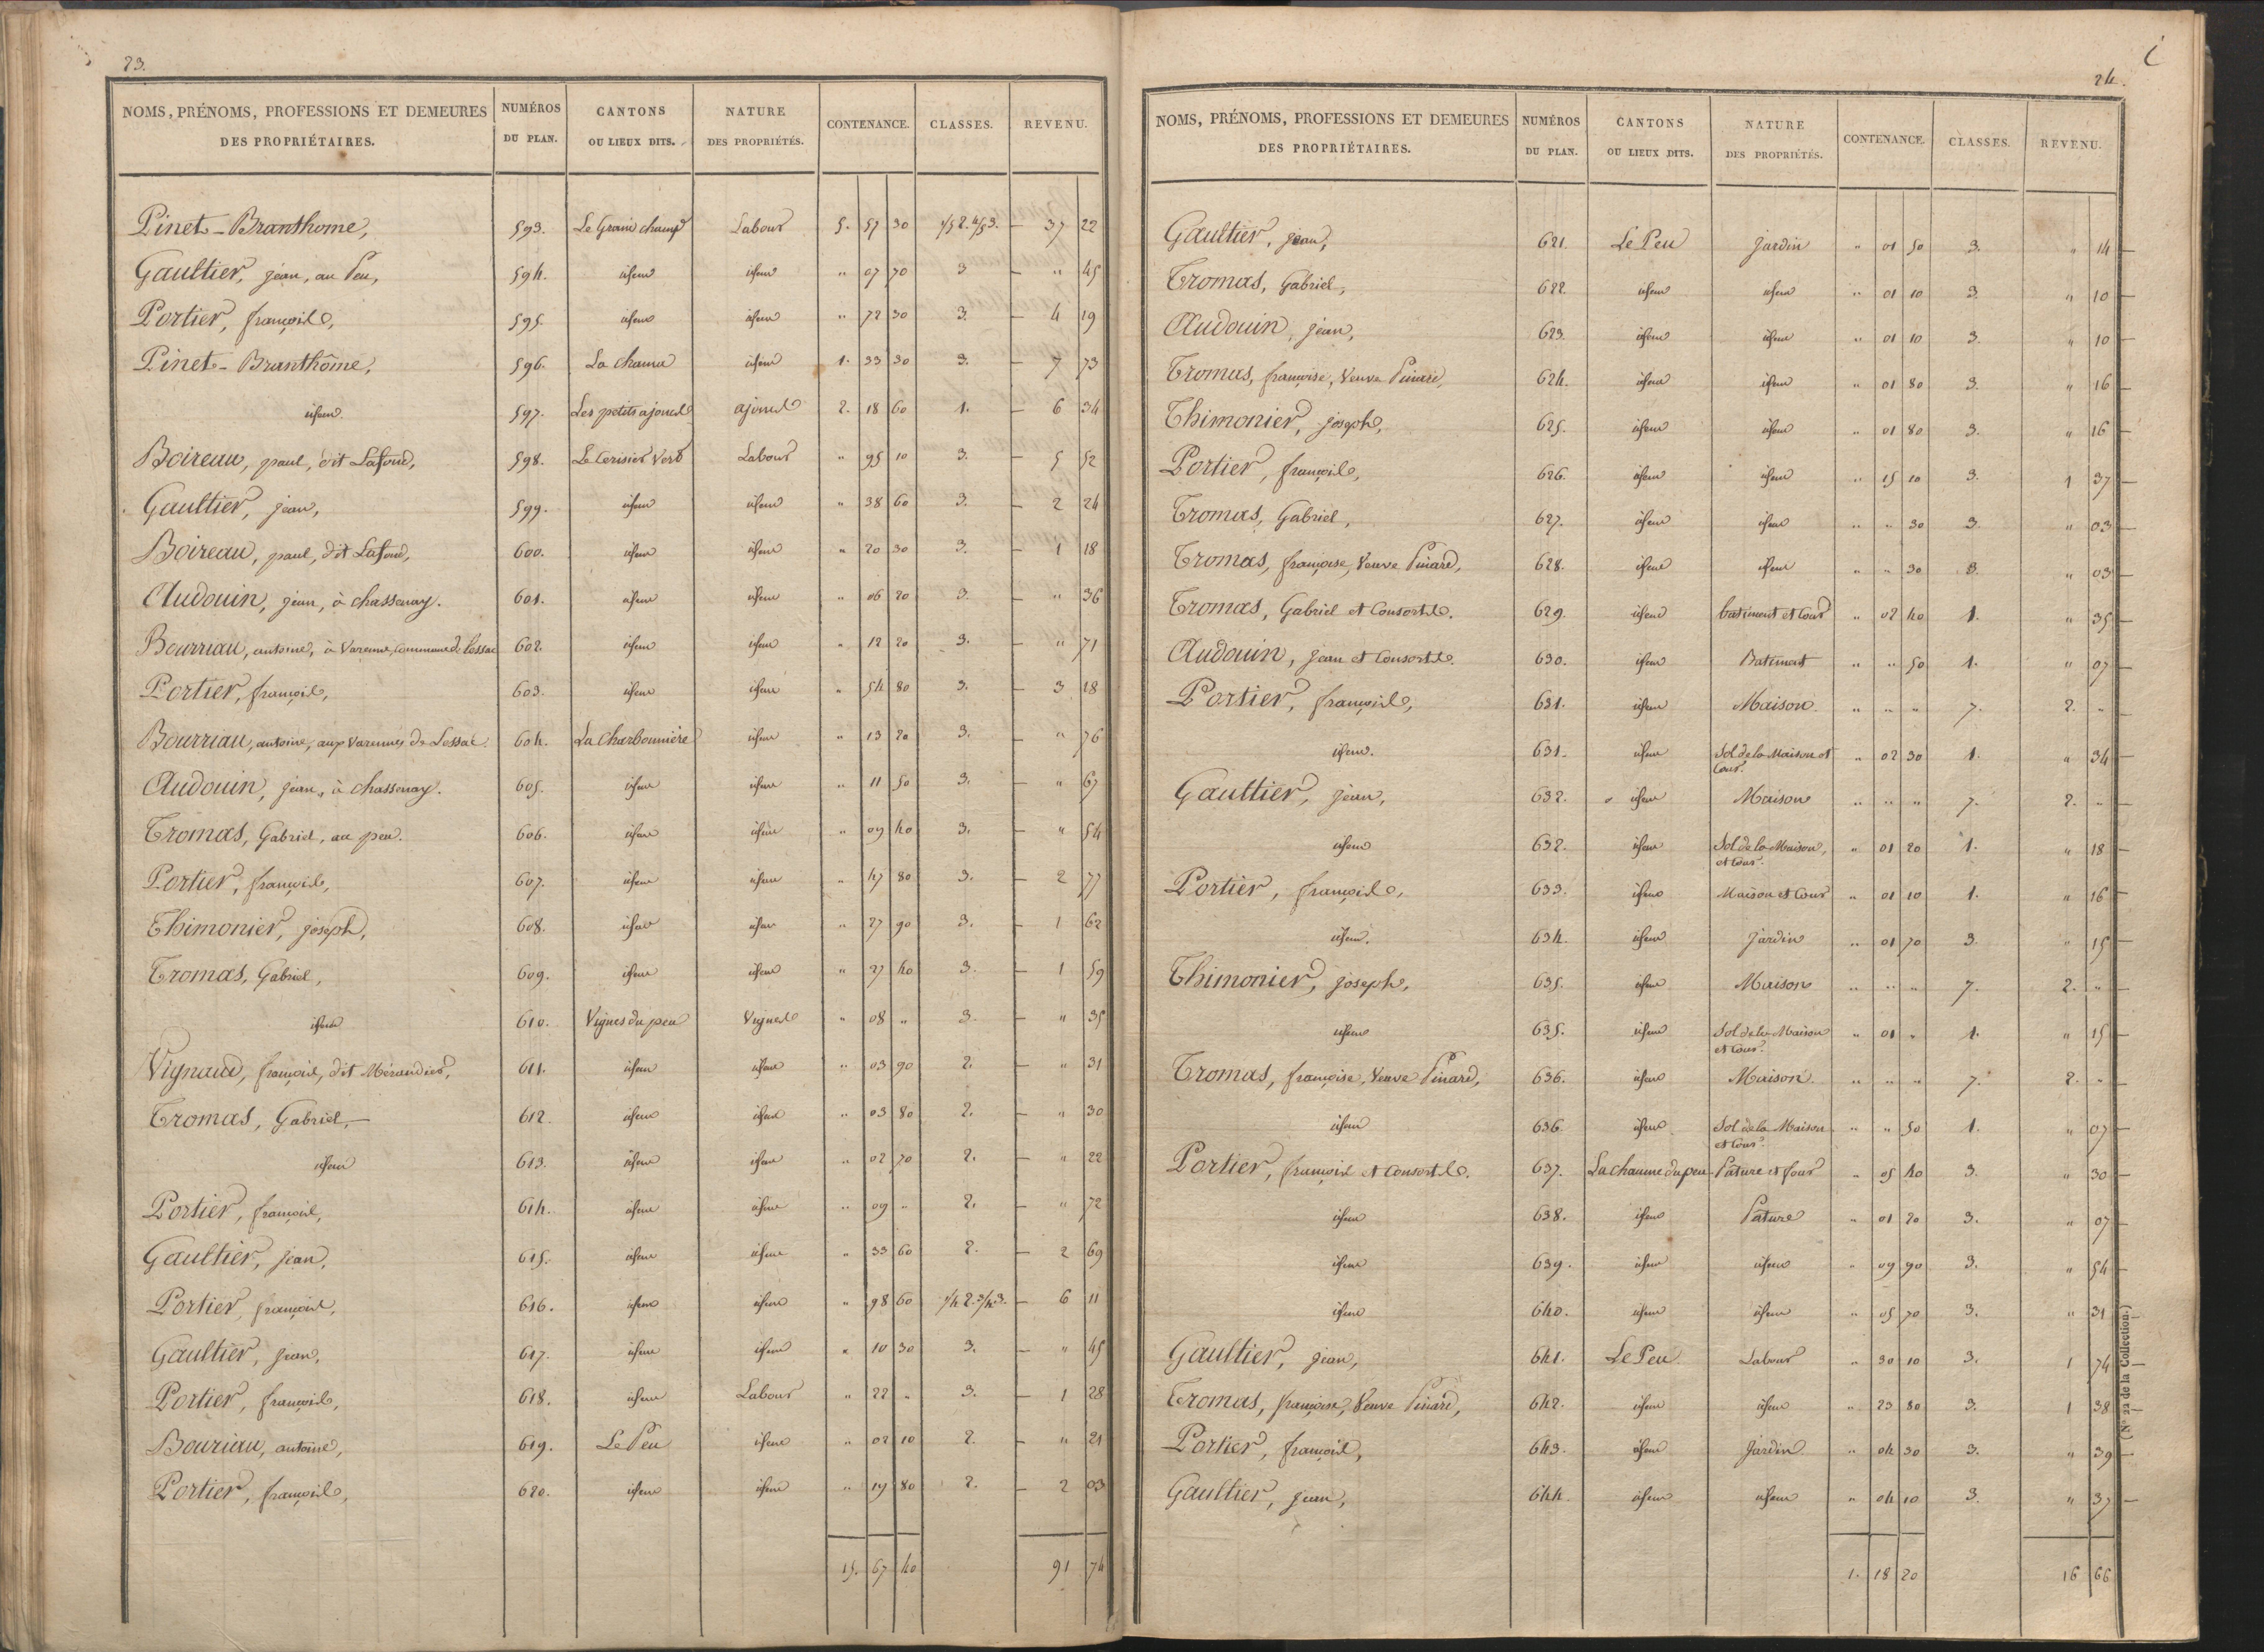 23.
NOMS, PRÉNOMS, PROFESSIONS ET DEMEURES DES PROPRIÉTAIRES. NUMÉROS DU PLAN. CANTONS OU LIEUX DITS. NATURE DES PROPRIÉTÉS. CONTENANCE. CLASSES. REVENU.
Pinet-Branthome, 593. Le Grand champ Labour 5. 57 30 1/5 2. 4/5 3. 37 22
Gaultier, jean, au Peu, 594. idem idem " 07 70 3 " 45
Portier, françois, 595. idem idem " 72 30 3. 4 19
Pinet-Branthôme, 596. La chaume idem 1. 33 30 3. 7 73
idem. 597. Les petits ajoncs ajoncs 2. 18 60 1. 6 34
Boireau, paul, dit Lafond, 598. Le Cerisier Vert Labour " 95 10 3. 5 52
Gaultier, jean, 599. idem idem " 38 60 3. 2 24
Boireau, paul, dit Lafond, 600. idem idem " 20 30 3. 1 18
Audouin, jean, à chassenay. 601. idem idem " 06 20 3. " 36
Bourriau, antoine, à Varenne, commune de Lessac 602. idem idem " 12 20 3. " 71
Portier, françois, 603. idem idem " 54 80 3. 3 18
Bourriau, antoine, aux Varennes de Lessac. 604. La Charbonnière idem " 13 20 3. " 76
Audouin, jean, à chassenay. 605. idem idem " 11 50 3. " 67
Tromas, Gabriel, au peu. 606. idem idem " 09 40 3. " 54
Portier, françois, 607. idem idem " 47 80 3. 2 77
Thimonier, joseph, 608. idem idem " 27 90 3. 1 62
Tromas, Gabriel, 609. idem idem " 27 40 3. 1 59
idem 610. Vignes du peu Vignes " 08 " 3. " 35
Vignaud, françois, dit Mérandier, 611. idem idem " 03 90 2. " 31
Tromas, Gabriel, 612. idem idem " 03 80 2. " 30
idem 613. idem idem " 02 70 2. " 22
Portier, françois, 614. idem idem " 09 " 2. " 72
Gaultier, jean, 615. idem idem " 33 60 2. 2 69
Portier, françois, 616. idem idem " 98 60 1/4 2. 3/4 3. 6 11
Gaultier, jean, 617. idem idem " 10 30 3. " 45
Portier, françois, 618. idem Labour " 22 " 3. 1 28
Bouriau, antoine, 619. Le Peu idem " 02 10 2. " 21
Portier, françois, 620. idem idem " 19 80 2. 2 03
15. 67 40 91 74
24.
NOMS, PRÉNOMS, PROFESSIONS ET DEMEURES DES PROPRIÉTAIRES. NUMÉROS DU PLAN. CANTONS OU LIEUX DITS. NATURE DES PROPRIÉTÉS. CONTENANCE. CLASSES. REVENU.
Gaultier, jean, 621. Le Peu jardin " 01 50 3. " 14
Tromas, Gabriel, 622 idem idem " 01 10 3. " 10
Audouin, jean, 623 idem idem " 01 10 3. " 10
Tromas, françoise, Veuve Pinard, 624. idem idem " 01 80 3. " 16
Thimonier, joseph, 625. idem idem " 01 80 3. " 16
Portier, françois, 626. idem idem " 15 10 3. 1 37
Tromas, Gabriel, 627. idem idem " " 30 3. " 03
Tromas, françoise, Veuve Pinard, 628. idem idem " " 30 3. " 03
Tromas, Gabriel et Consorts. 629. idem batiment et Cour " 02 40 1. " 35
Audouin, jean et Consorts. 630. idem Batiment " " 50 1. " 07
Portier, françois, 631. idem Maison " " " 7. 2. "
idem. 631. idem Sol de la Maison et Cour. " 02 30 1. " 34
Gaultier, jean, 632. idem Maison " " " 7. 2. "
idem 632. idem Sol de la Maison, et Cour. " 01 20 1. " 18
Portier, françois, 633. idem Maison et Cour " 01 10 1. " 16
idem. 634. idem Jardin " 01 70 3. " 15
Thimonier, joseph, 635. idem Maison " " " 7. 2. "
idem 635. idem Sol de la Maison et Cour. " 01 " 1. " 15
Tromas, françoise, Veuve Pinard, 636. idem Maison " " " 7. 2. "
idem 636 idem Sol de la Maison et Cour. " " 50 1. " 07
Portier, françois et Consorts. 637. La chaume du peu Pâture et four " 05 40 3. " 30
idem 638. idem Pâture " 01 20 3. " 07
idem 639. idem idem " 09 90 3. " 54
idem 640. idem idem " 05 70 3. " 31
Gaultier, jean, 641. Le Peu Labour " 30 10 3. 1 74
Tromas, françoise, Veuve Pinard, 642. idem idem " 23 80 3. 1 38
Portier, françois, 643. idem Jardin " 04 30 3. " 39
Gaultier, jean, 644. idem idem " 04 10 3. " 37
1. 18 20 16 66
(N° 22 de la Collection.)